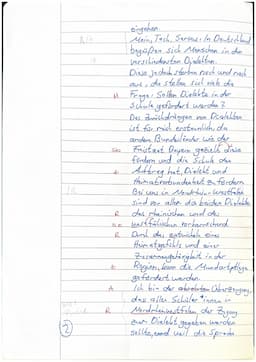 eingehen.
Moin, Tach, Servus: In Deutschland
begrüßen sich Menschen in den
verschiedensten Dialekten.
Diese jedoch sterben nach und nach
aus, da stellen sich viele die
Frage: Sollen Dialekte in der
Schule gefördert werden?
Das Zurückdrängen von Dialekten
ist für mich erstaunlich, da
andere Bundesländer wie der
Freistaat Bayern gezielt diese
fördern und die Schule den
Auftrag hat, Dialekt und
Heimatverbundenheit zu fördern.
Bei uns in Nordrhein-Westfalen
sind vor allem die beiden Dialekte
R das rheinischen und des
westfälischen vorherrschend.
R Durch das entwickeln eines
Heimatgefühls und einer
Zusammengehörigkeit in der
Region, kann die Mundartpflege
gefördert werden.
A Ich bin der absoluten Überzeugung,
das aller Schüler*innen in
R Nordrhein-Westfalen der Zugang
zum Dialekt gegeben werden
sollte, weil die Sprache
2